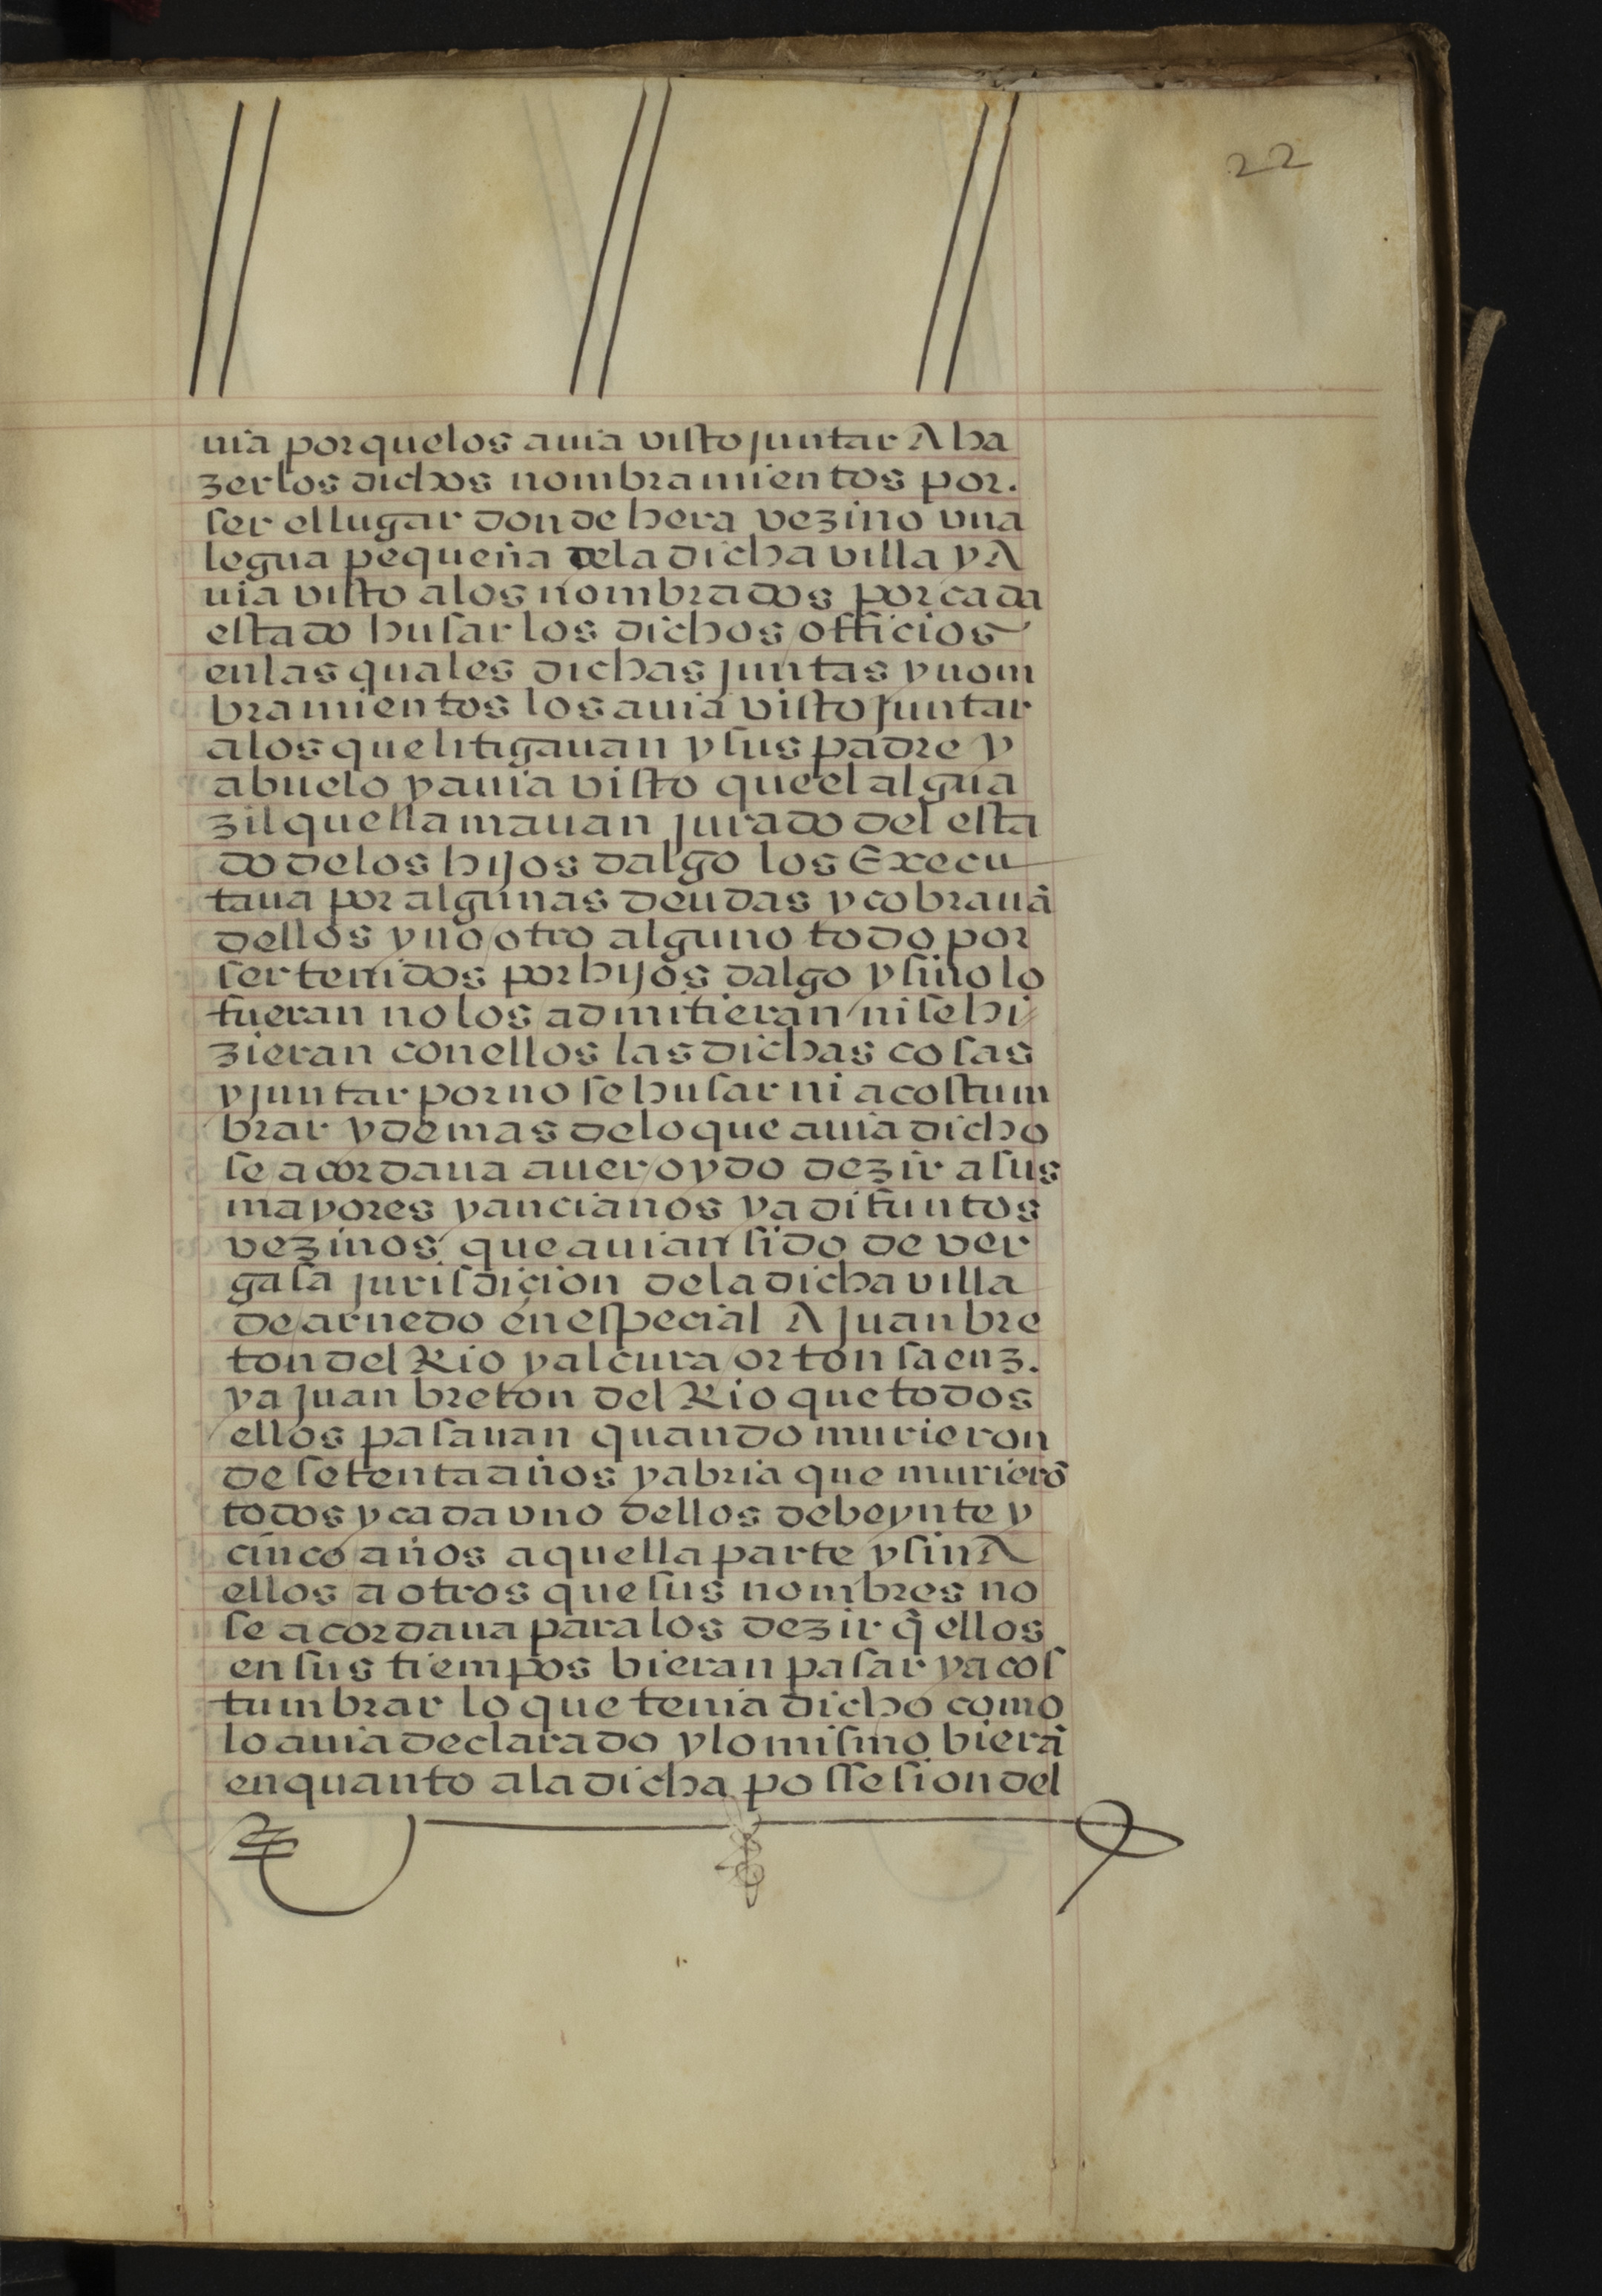 22
uia porque los auia visto juntar A ha
zer los dichos nombramientos por.
ser el lugar donde hera vezino vna
legua pequeña de la dicha villa y A
uia visto a los nombrados por cada
estado husar los dichos officios
en las quales dichas juntas y nom
bramientos los auia visto juntar
a los que litigauan y sus padre y
abuelo y auia visto que el algua
zil que llamauan jurado del esta
do de los hijos dalgo los Execu
taua por algunas deudas y cobrauã
dellos y no otro alguno todo por
ser tenidos por hijos dalgo y si no lo
fueran no los admitieran ni se hi
zieran con ellos las dichas cosas
y juntar por no se husar ni acostum
brar y demas de lo que auia dicho
se acordaua auer oydo dezir a sus
mayores y ancianos ya difuntos
vezinos que auian sido de ver
gasa jurisdiçion de la dicha villa
de arnedo en especial A Juan bre
ton del Rio y al cura orton saenz.
y a Juan breton del Rio que todos
ellos pasauan quando murieron
de setenta años y abria que murierõ
todos y cada uno dellos de beynte y
cinco años a quella parte y sin A
ellos a otros que sus nombres no
se acordaua para los dezir q̃ ellos
en sus tiempos bieran pasar y acos
tumbrar lo que tenia dicho como
lo auia declarado y lo mismo bierã
en quanto a la dicha possesion del